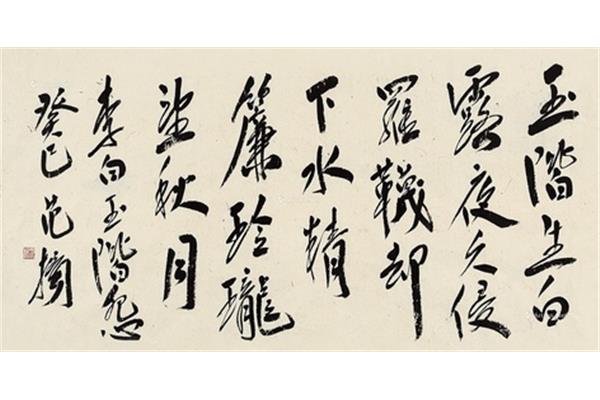 玉階生白
露夜久侵
羅韈却
下水精
簾玲瓏
望秋月
李白玉階怨
癸巳范